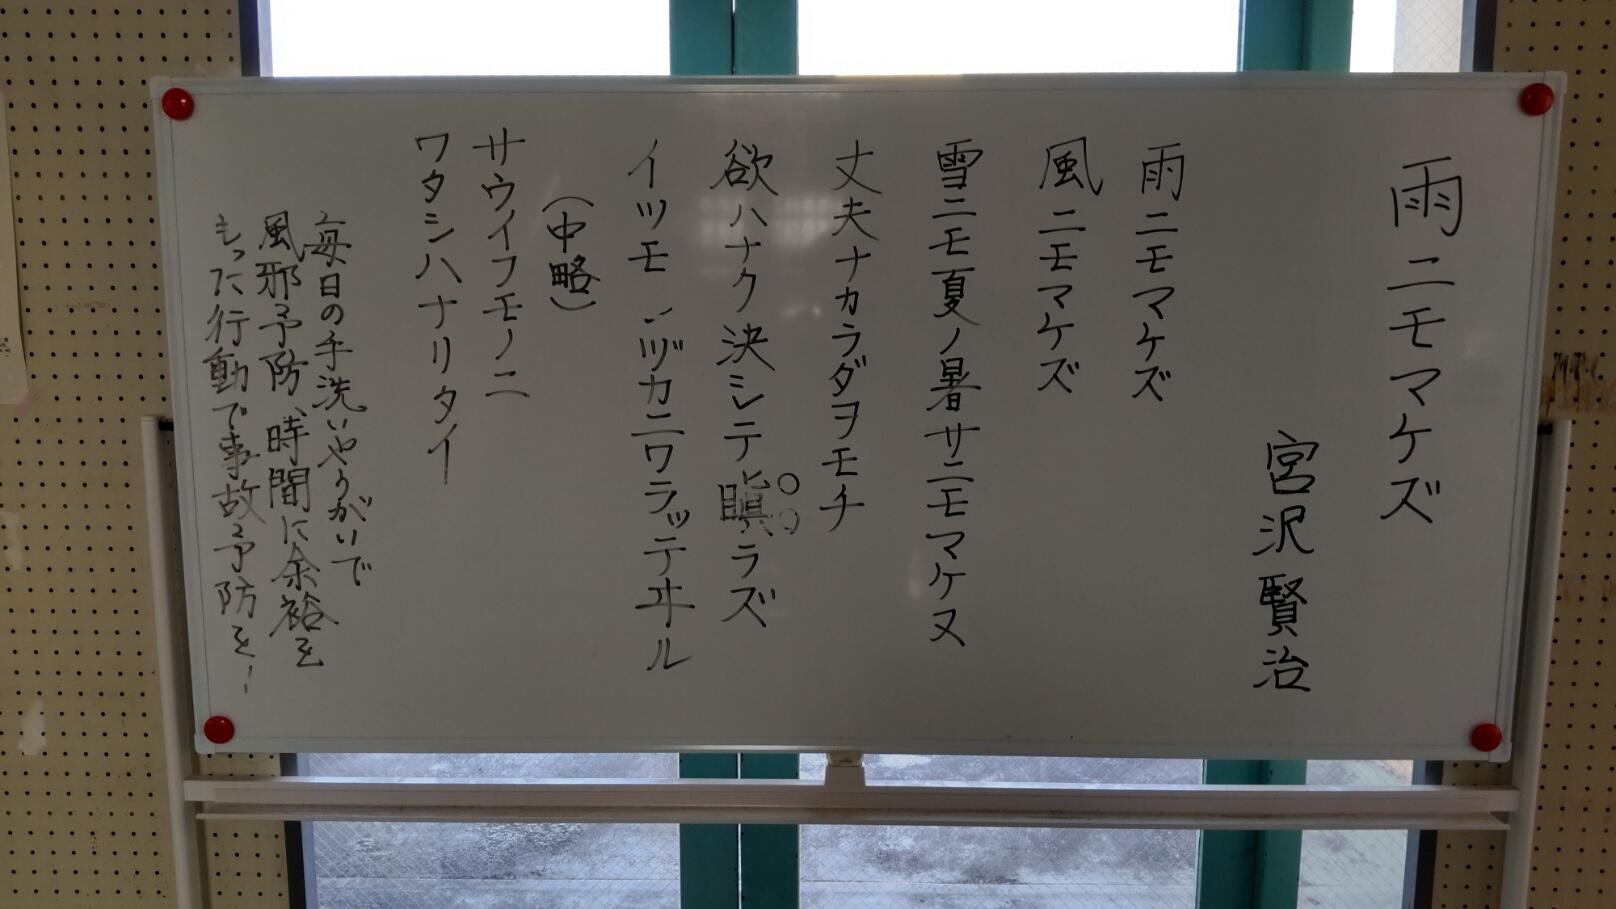 雨ニモマケズ
宮沢賢治
雨ニモマケズ
風ニモマケズ
雪ニモ夏ノ暑サニモマケヌ
丈夫ナカラダヲモチ
欲ハナク決シテ瞋ラズ
イツモシヅカニワラッテヰル
(中略)
サウイフモノニ
ワタシハナリタイ
毎日の手洗いやうがいで
風邪予防、時間に余裕を
もった行動で事故予防を!